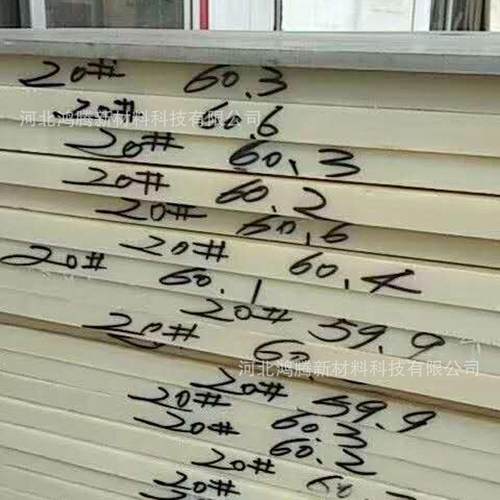 20# 60.3
20# 60.6
河北鸿腾新材料科技有限公司
20# 60.3
20# 60.2
20# 60.6
20# 60.4
20# 60.1
20# 59.9
20# 60.
河北鸿腾新材料科技有限公司
20# 59.9
20# 60.3
20# 60.2
20#
20#